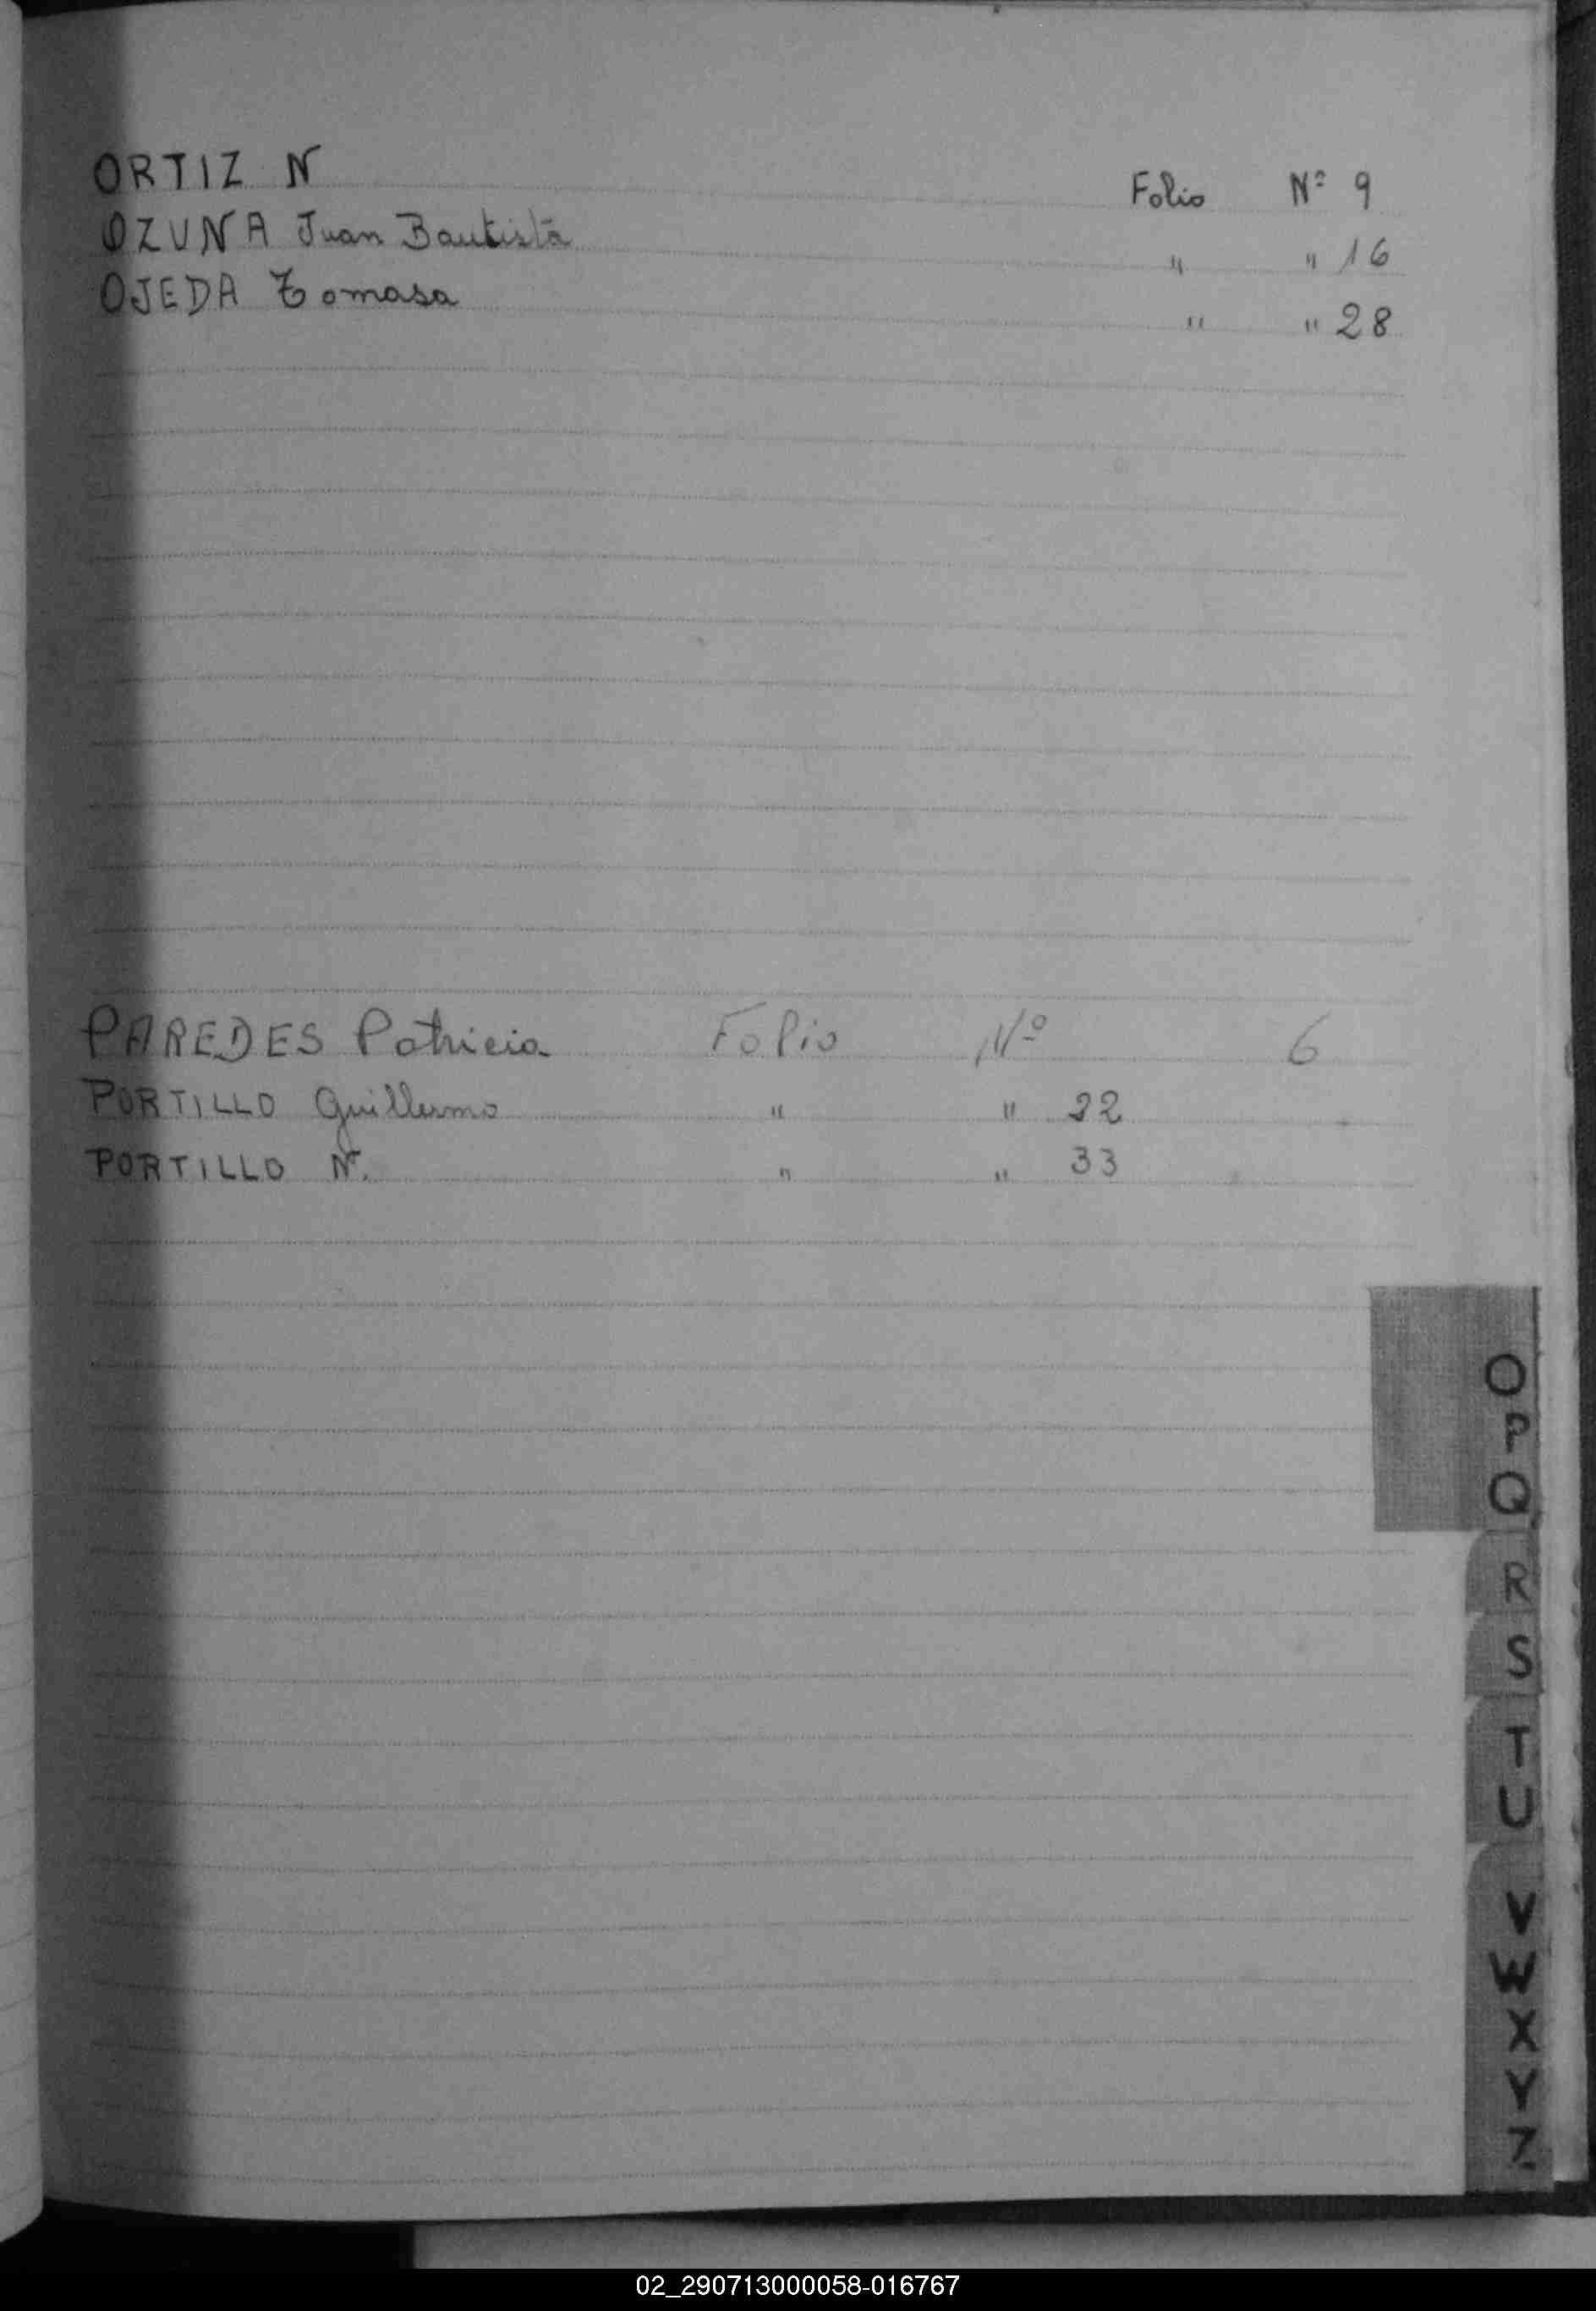 ORTIZ N Folio Nº 9
OZUNA Juan Bautista " " 16
OJEDA Tomasa " " 28
PAREDES Patricia Folio Nº 6
PORTILLO Guillermo " " 22
PORTILLO N. " " 33
O
P
Q
R
S
T
U
V
W
X
Y
Z
02_290713000058-016767